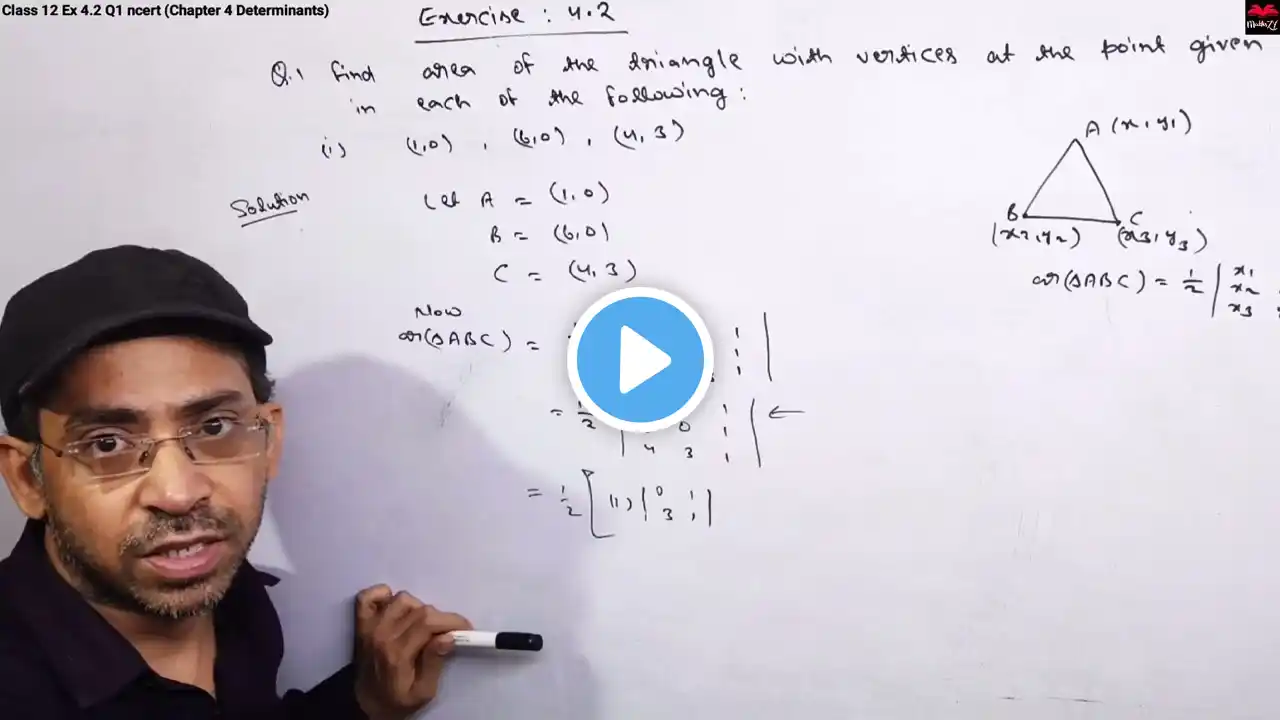 Class 12 Ex 4.2 Q1 ncert (Chapter 4 Determinants)
Exercise : 4.2
Q.1 Find area of the triangle with vertices at the point given
in each of the following :
(i) (1,0) , (6,0) , (4,3)
Solution
Let A = (1,0)
B = (6,0)
C = (4,3)
Now
ar(ΔABC) =
1 1 1
= 1/2 | 0 1
4 3 1 | ←
= 1/2 [ (1) | 0 1
3 1 |
A (x1,y1)
B C
(x2,y2) (x3,y3)
ar(ΔABC) = 1/2 | x1
x2
x3